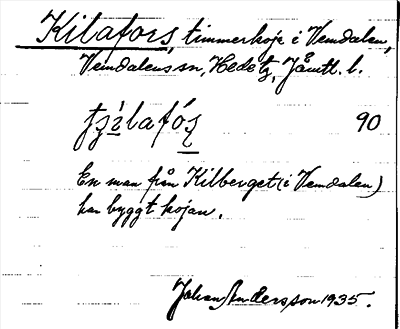 Kilafors, timmerkoje i Vemdalen,
Vemdalens sn, Hede tg, Jämtl. l.
90
En man från Kilberget (i Vemdalen)
har byggt kojan.
Johan Andersson 1935.